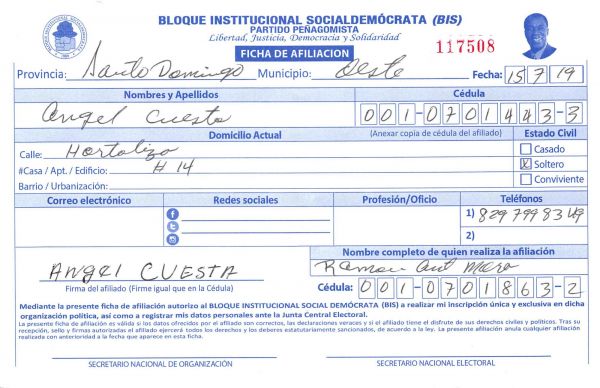 BLOQUE INSTITUCIONAL SOCIALDEMÓCRATA (BIS)
PARTIDO PEÑAGOMISTA
Libertad, Justicia, Democracia y Solidaridad
FICHA DE AFILIACION
117508
Provincia: Santo Domingo Municipio: Oeste Fecha: 15 7 19
Nombres y Apellidos Cédula
Angel Cuesta 001-0701443-3
Domicilio Actual (Anexar copia de cédula del afiliado) Estado Civil
Calle: Hortaliza Casado
#Casa / Apt. / Edificio: # 14 Soltero
Barrio / Urbanización: Conviviente
Correo electrónico Redes sociales Profesión/Oficio Teléfonos
1) 829 799 8349
2)
Nombre completo de quien realiza la afiliación
ANGEL CUESTA Ramon Ant
Firma del afiliado (Firme igual que en la Cédula) Cédula: 001-0701863-2
Mediante la presente ficha de afiliación autorizo al BLOQUE INSTITUCIONAL SOCIAL DEMÓCRATA (BIS) a realizar mi inscripción única y exclusiva en dicha
organización política, así como a registrar mis datos personales ante la Junta Central Electoral.
La presente ficha de afiliación es válida si los datos ofrecidos por el afiliado son correctos, las declaraciones veraces y si el afiliado tiene el disfrute de sus derechos civiles y políticos. Tras su
recepción, sello y firmas autorizadas el afiliado ejercerá todos los derechos y los deberes estatutariamente sancionados, de acuerdo a la ley. La presente afiliación anula cualquier afiliación
realizada con anterioridad a la fecha que aparece en esta ficha.
SECRETARIO NACIONAL DE ORGANIZACIÓN SECRETARIO NACIONAL ELECTORAL